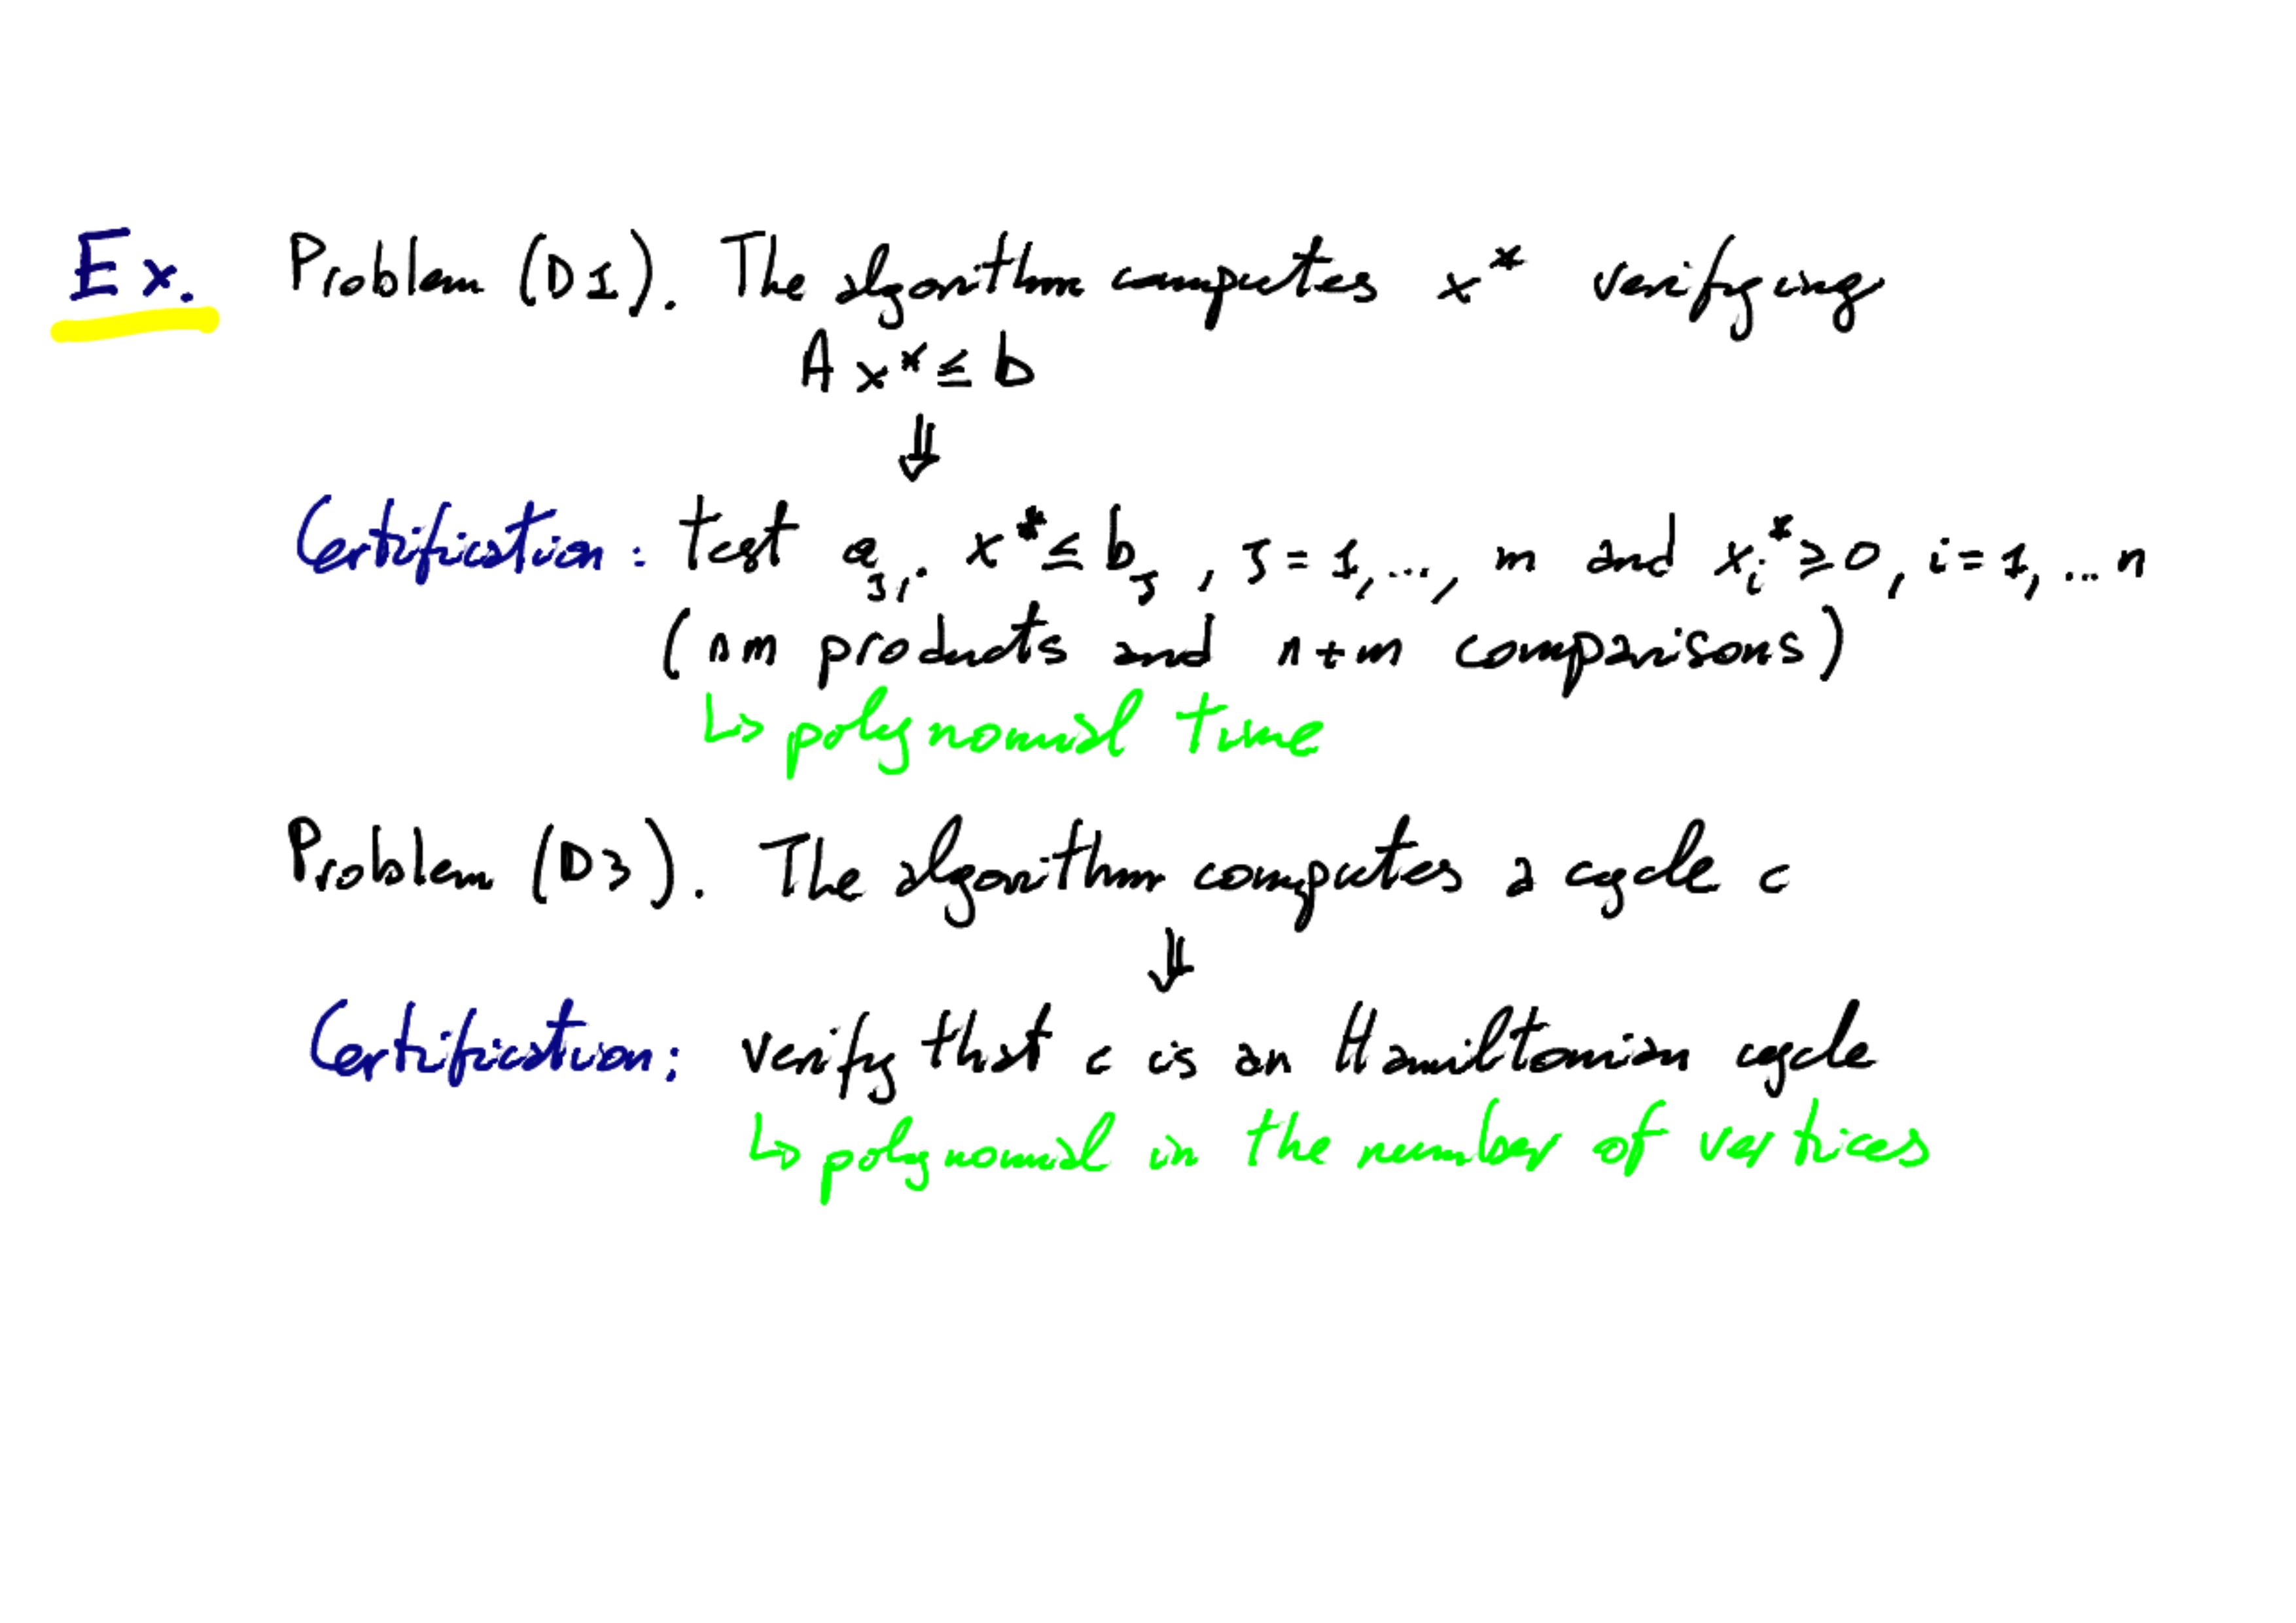 Ex. Problem (D1). The algorithm computes x* verifying
A x* ≤ b
⇓
Certification: test a_j,. x* ≤ b_j, j = 1, ..., m and x_i* ≥ 0, i = 1, ... n
(nm products and n+m comparisons)
↳ polynomial time
Problem (D3). The algorithm computes a cycle c
⇓
Certification: verify that c is an Hamiltonian cycle
↳ polynomial in the number of vertices